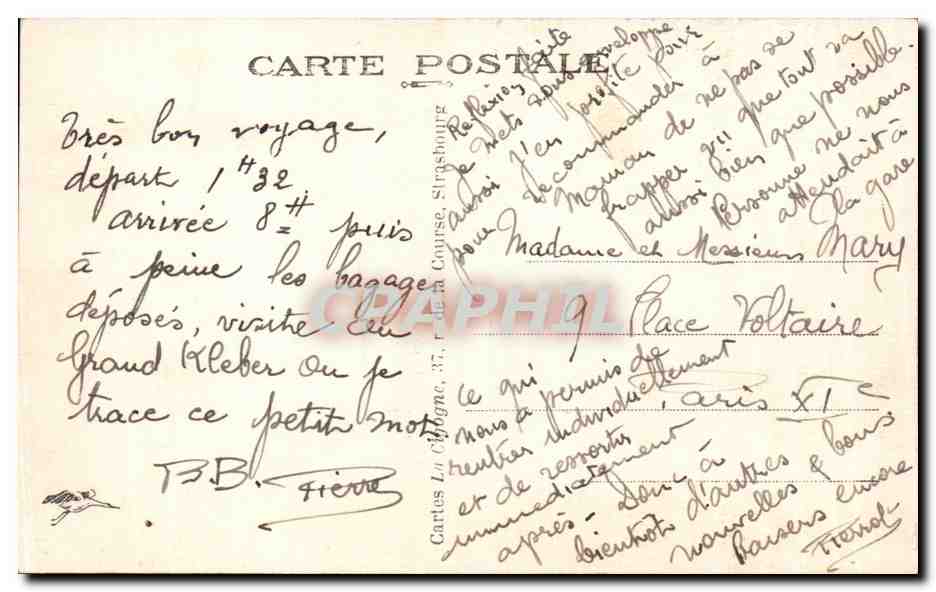 CARTE POSTALE
Très bon voyage,
départ 1H32
arrivée 8H puis
à peine les bagages
déposés, visite au
Grand Kleber Ou je
trace ce petit mot.
B.B. Pierre
Cartes La Cigogne, 37, r. de la Course, Strasbourg
Réflexion faite
je mets sous enveloppe
aussi j'en profite pour
pour recommander à
Maman de ne pas se
frapper vu que tout va
aussi bien que possible.
Personne ne nous
attendait à
la gare
Madame et Messieurs Mary
9 Place Voltaire
Paris XIe
ce qui
nous a permis de
rentrer individuellement
et de ressortir
immédiatement
après. Donc à
bientôt d'autres
nouvelles & bons
baisers encore
Pierrot
CPAPHIL